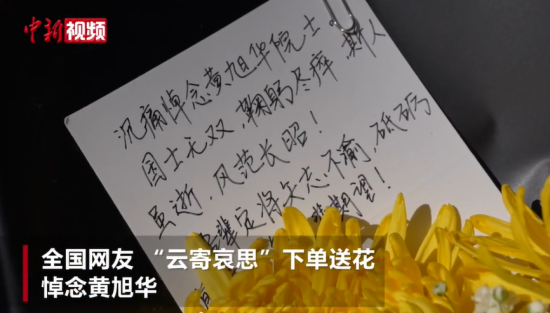 中新视频
沉痛悼念黄旭华院士
国士无双，鞠躬尽瘁，斯人
虽逝，风范长昭！
辈定将矢志不渝，砥砺
期望！
全国网友 “云寄哀思”下单送花
悼念黄旭华